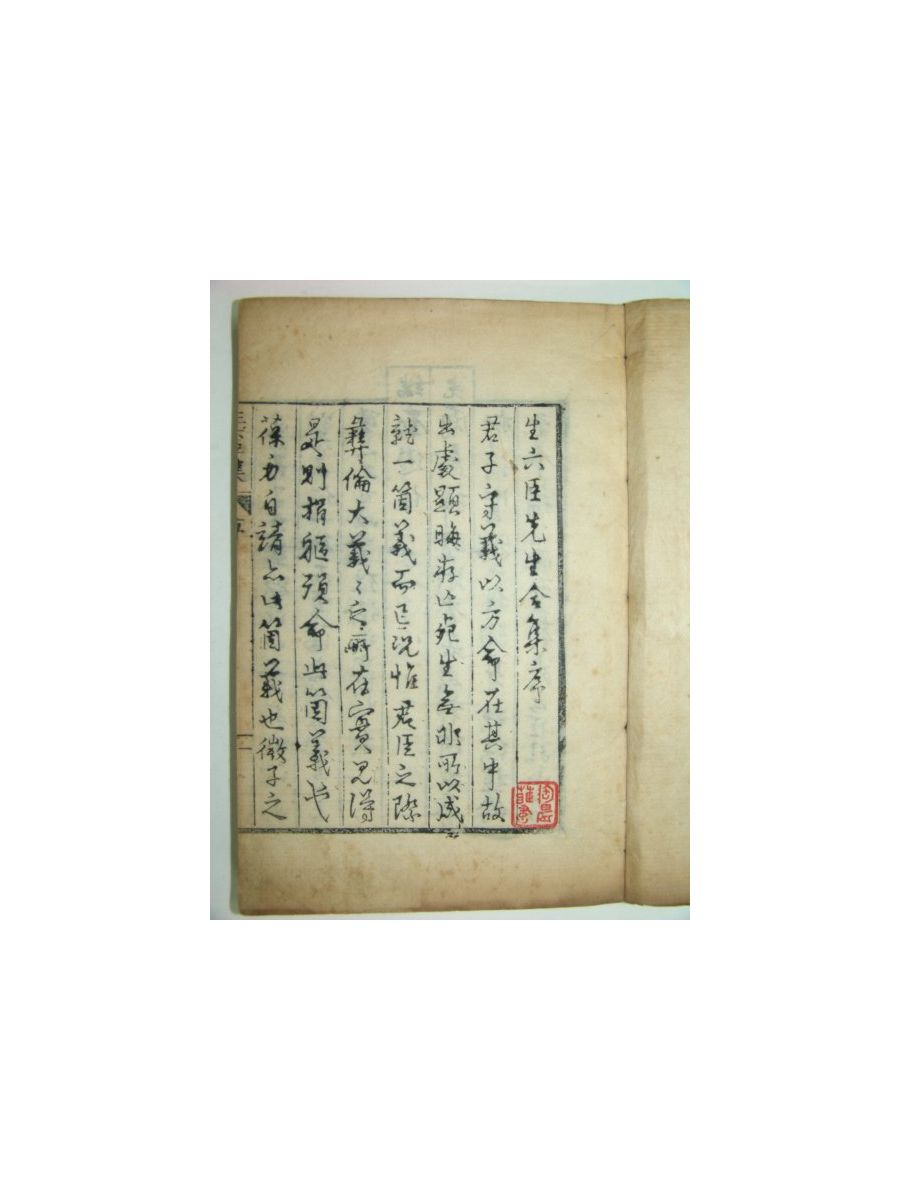 生六臣先生合集序
君子守義以方命在其中故
出處顯晦存亡死生無非所以成
就一箇義而已況惟君臣之際
彝倫大義々之所在實見得
是則捐軀殞命此箇義也
葆身自靖亦此箇義也微子之